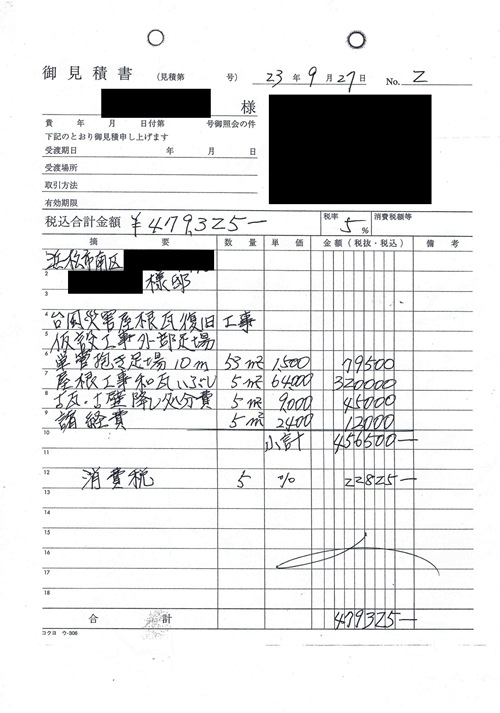 御見積書 (見積第 号) 23年 9月 27日 No. 2
様
貴 年 月 日付第 号御照会の件
下記のとおり御見積申し上げます
受渡期日 年 月 日
受渡場所
取引方法
有効期限
税込合計金額 ¥479,325― 税率 5% 消費税額等
摘 要 数量 単価 金額(税抜・税込) 備考
浜松市南区
2
3 様邸
4 台風災害屋根瓦復旧工事
5 仮設工事外部足場
6 単管抱き足場10m 53m² 1,500 79500
7 屋根工事和瓦いぶし 5m² 64000 320000
8 古瓦・古壁降し処分費 5m² 9,000 45000
9 諸経費 5m² 2400 12000
10 小計 456500―
11
12 消費税 5 % 22825―
13
14
15
16
17
18
合 計 479325―
コクヨ ウ-306